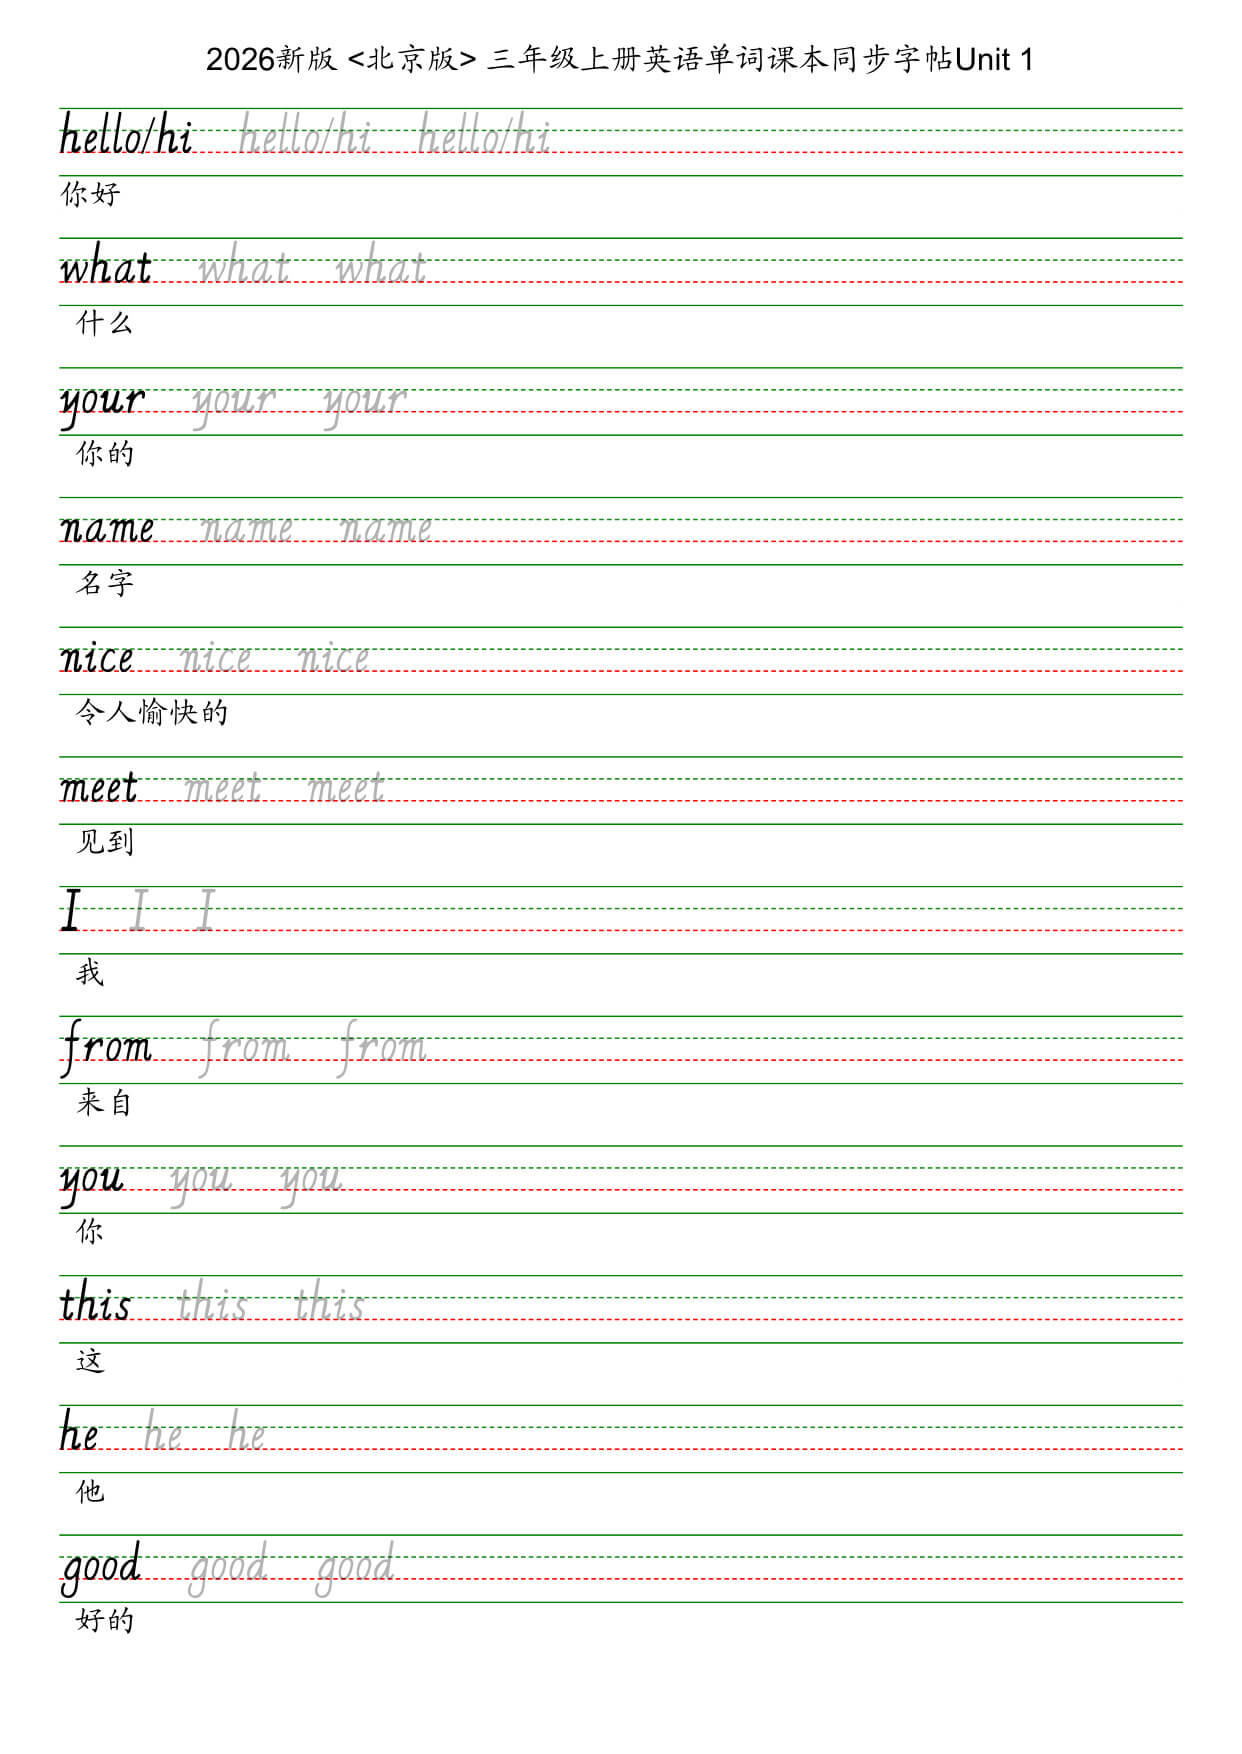 2026新版 <北京版> 三年级上册英语单词课本同步字帖Unit 1
hello/hi hello/hi hello/hi
你好
what what what
什么
your your your
你的
name name name
名字
nice nice nice
令人愉快的
meet meet meet
见到
I I I
我
from from from
来自
you you you
你
this this this
这
he he he
他
good good good
好的